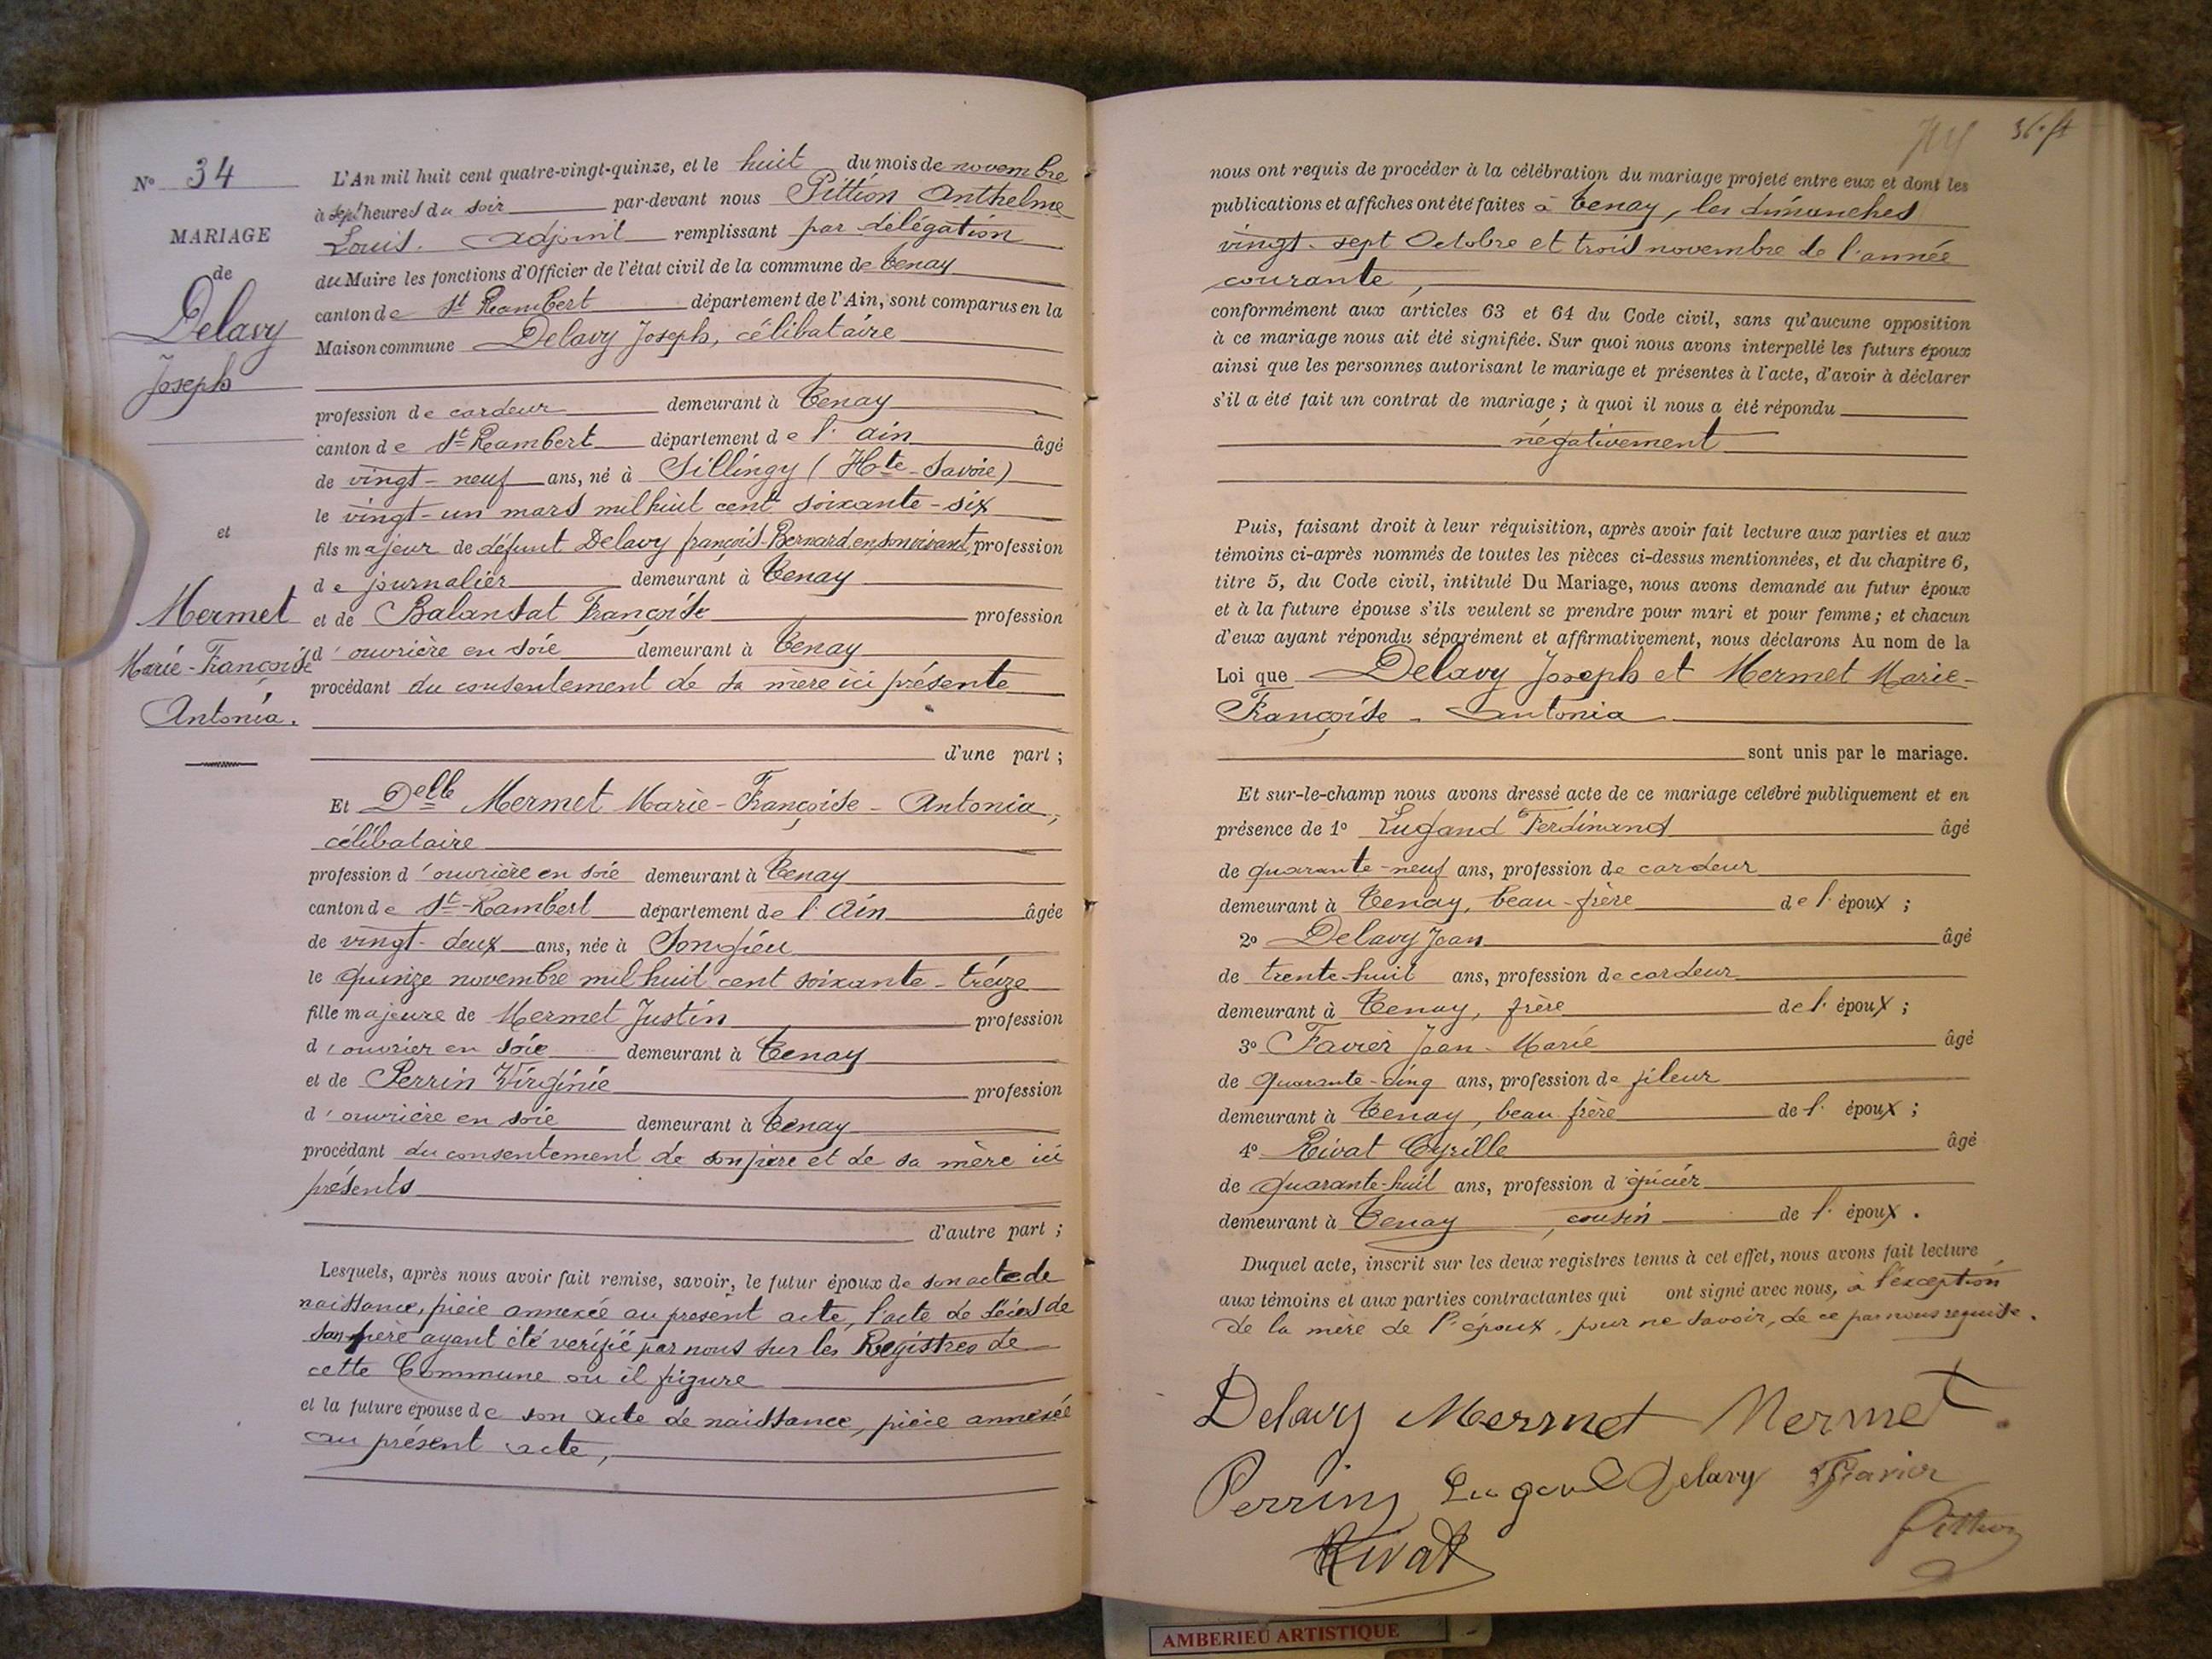 N° 34
MARIAGE
de
Delavy
Joseph
et
Mermet
Marie-Françoise
Antonia.
L'An mil huit cent quatre-vingt-quinze, et le huit du mois de novembre
à sept heures du soir par-devant nous Pittion Anthelme
Louis. adjoint remplissant par délégation
du Maire les fonctions d'Officier de l'état civil de la commune de Tenay
canton de St Rambert département de l'Ain, sont comparus en la
Maison commune Delavy Joseph, célibataire
profession de cardeur demeurant à Tenay
canton de St Rambert département de l'ain âgé
de vingt-neuf ans, né à Sillingy (Hte-Savoie)
le vingt-un mars mil huit cent soixante-six
fils majeur de défunt Delavy françois-Bernard, en son vivant, profession
de journalier demeurant à Tenay
et de Balansat Françoise profession
d'ouvrière en soie demeurant à Tenay
procédant du consentement de sa mère ici présente
d'une part ;
Et Delle Mermet Marie-Françoise-Antonia,
célibataire
profession d'ouvrière en soie demeurant à Tenay
canton de St-Rambert département de l'Ain âgée
de vingt-deux ans, née à Songieu
le quinze novembre mil huit cent soixante-treize
fille majeure de Mermet Justin profession
d'ouvrier en soie demeurant à Tenay
et de Perrin Virginie profession
d'ouvrière en soie demeurant à Tenay
procédant du consentement de son père et de sa mère ici
présents
d'autre part ;
Lesquels, après nous avoir fait remise, savoir, le futur époux de son acte de
naissance, pièce annexée au présent acte, l'acte de décès de
son père ayant été vérifié par nous sur les Registres de
cette Commune où il figure
et la future épouse de son acte de naissance, pièce annexée
au présent acte,
36. ft
nous ont requis de procéder à la célébration du mariage projeté entre eux et dont les
publications et affiches ont été faites à Tenay, les dimanches
vingt-sept Octobre et trois novembre de l'année
courante,
conformément aux articles 63 et 64 du Code civil, sans qu'aucune opposition
à ce mariage nous ait été signifiée. Sur quoi nous avons interpellé les futurs époux
ainsi que les personnes autorisant le mariage et présentes à l'acte, d'avoir à déclarer
s'il a été fait un contrat de mariage ; à quoi il nous a été répondu
négativement
Puis, faisant droit à leur réquisition, après avoir fait lecture aux parties et aux
témoins ci-après nommés de toutes les pièces ci-dessus mentionnées, et du chapitre 6,
titre 5, du Code civil, intitulé Du Mariage, nous avons demandé au futur époux
et à la future épouse s'ils veulent se prendre pour mari et pour femme ; et chacun
d'eux ayant répondu séparément et affirmativement, nous déclarons Au nom de la
Loi que Delavy Joseph et Mermet Marie-
Françoise-Antonia
sont unis par le mariage.
Et sur-le-champ nous avons dressé acte de ce mariage célébré publiquement et en
présence de 1° Lugand Ferdinand âgé
de quarante-neuf ans, profession de cardeur
demeurant à Tenay, beau-frère de l'époux ;
2° Delavy Jean âgé
de trente-huit ans, profession de cardeur
demeurant à Tenay, frère de l'époux ;
3° Favier Jean-Marie âgé
de quarante-cinq ans, profession de fileur
demeurant à Tenay, beau frère de l'époux ;
4° Rivat Cyrille âgé
de quarante-huit ans, profession d'épicier
demeurant à Tenay, cousin de l'époux.
Duquel acte, inscrit sur les deux registres tenus à cet effet, nous avons fait lecture
aux témoins et aux parties contractantes qui ont signé avec nous, à l'exception
de la mère de l'époux, pour ne savoir, de ce par nous requise.
Delavy Mermet Mermet
Perrin Lugand Delavy Favier
Pittion
Rivat
AMBERIEU ARTISTIQUE